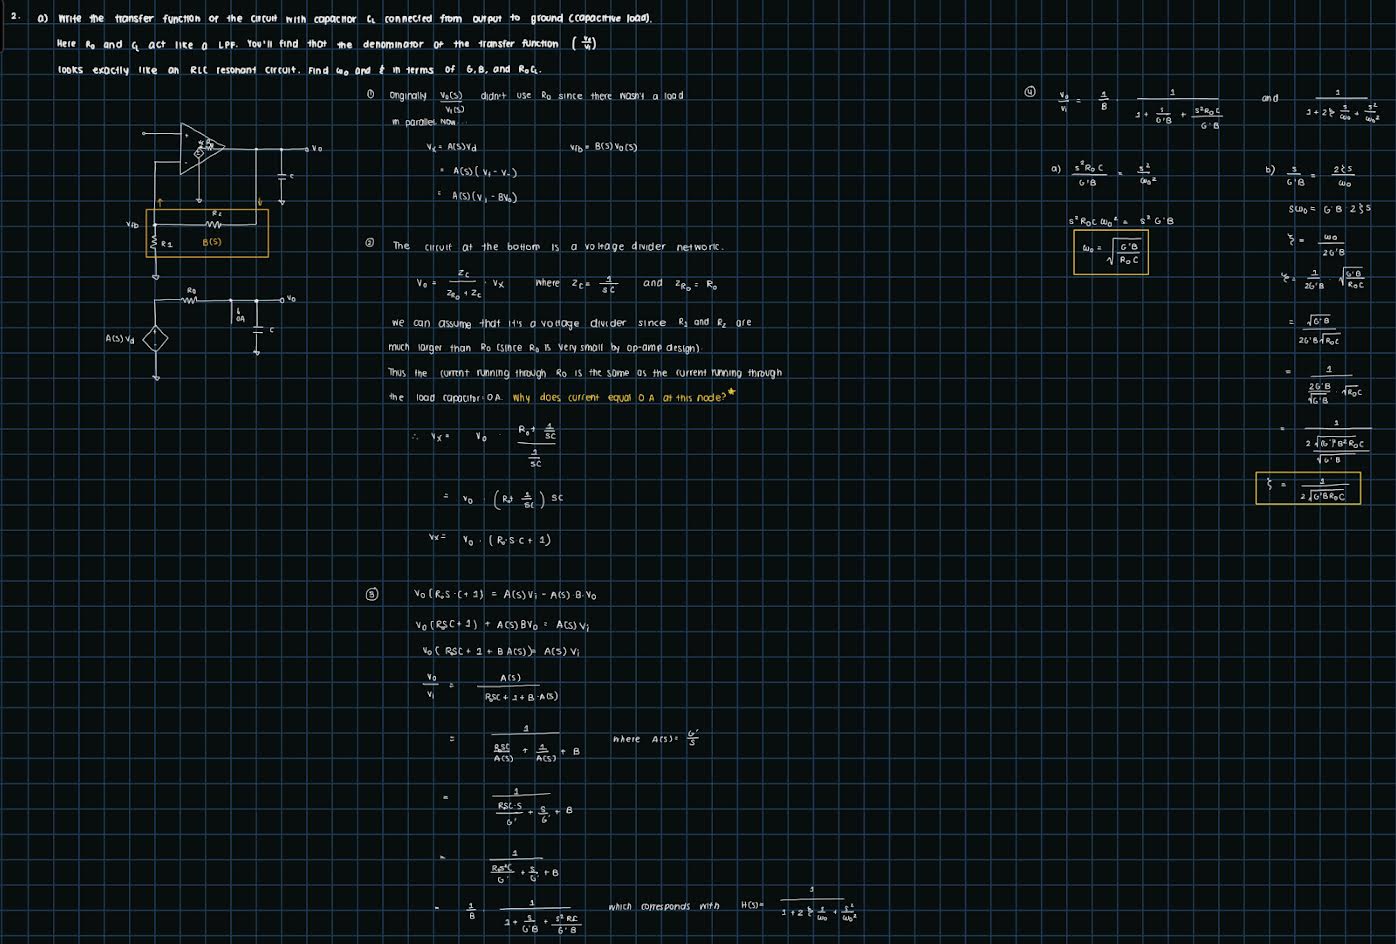 2. a) Write the transfer function of the circuit with capacitor C_L connected from output to ground (capacitive load).
Here R₀ and C_L act like a LPF. You'll find that the denominator of the transfer function (V₀/Vᵢ)
looks exactly like an RLC resonant circuit. Find ω₀ and ξ in terms of G', B, and R₀C_L.
① Originally V₀(s)/Vᵢ(s) didn't use R₀ since there wasn't a load
in parallel. Now...
Vₓ = A(s)Vd    Vfb = B(s)V₀(s)
= A(s)(V₊ - V₋)
= A(s)(Vᵢ - BV₀)
+
-
V₀
C
R₂
Vfb
R1
B(s)
② The circuit at the bottom is a voltage divider network.
V₀ = Zc/(Z_R₀ + Zc) · Vx where Zc = 1/SC and Z_R₀ = R₀
R₀
V₀
0A
C
A(s)Vd
we can assume that it's a voltage divider since R₁ and R₂ are
much larger than R₀ (since R₀ is very small by op-amp design).
Thus the current running through R₀ is the same as the current running through
the load capacitor: 0A. Why does current equal 0 A at this node?*
∴ Vx = V₀ · (R₀ + 1/SC)/(1/SC)
= V₀ · (R₀ + 1/SC) SC
Vx = V₀ · (R₀ S C + 1)
③ V₀(R₀S·C + 1) = A(s)Vᵢ - A(s)·B·V₀
V₀(RSC + 1) + A(s)BV₀ = A(s)Vᵢ
V₀(RSC + 1 + B A(s)) = A(s)Vᵢ
V₀/Vᵢ = A(s)/(RSC + 1 + B·A(s))
= 1/(RSC/A(s) + 1/A(s) + B) where A(s) = G'/S
= 1/(RSC·S/G' + S/G' + B)
= 1/(R₀S²C/G' + S/G' + B)
= 1/B · 1/(1 + S/G'B + S²RC/G'B) which corresponds with H(s) = 1/(1 + 2ξ s/ω₀ + s²/ω₀²)
④ V₀/Vᵢ = 1/B · 1/(1 + S/G'B + S²R₀C/G'B) and 1/(1 + 2ξ s/ω₀ + s²/ω₀²)
a) S²R₀C/G'B = S²/ω₀²
S²R₀Cω₀² = S²G'B
ω₀ = √(G'B/R₀C)
b) S/G'B = 2ξS/ω₀
Sω₀ = G'B 2ξS
ξ = ω₀/2G'B
ξ = 1/2G'B · √(G'B/R₀C)
= √G'B/(2G'B√R₀C)
= 1/(2G'B/√G'B · √R₀C)
= 1/(2√((G')²B²R₀C)/√G'B)
ξ = 1/(2√G'BR₀C)